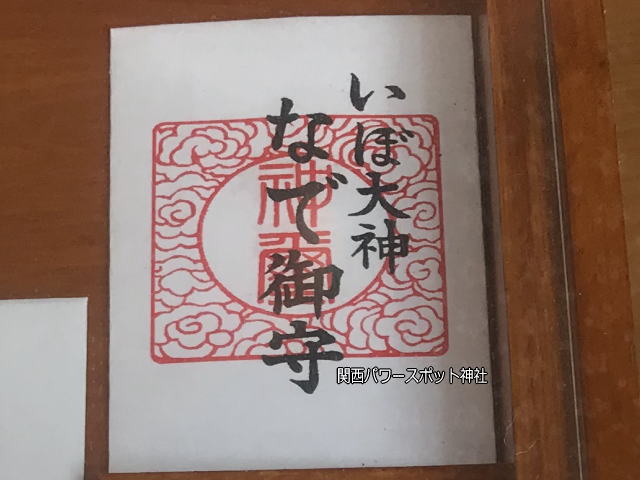 いぼ大神
なで御守
神璽
関西パワースポット神社